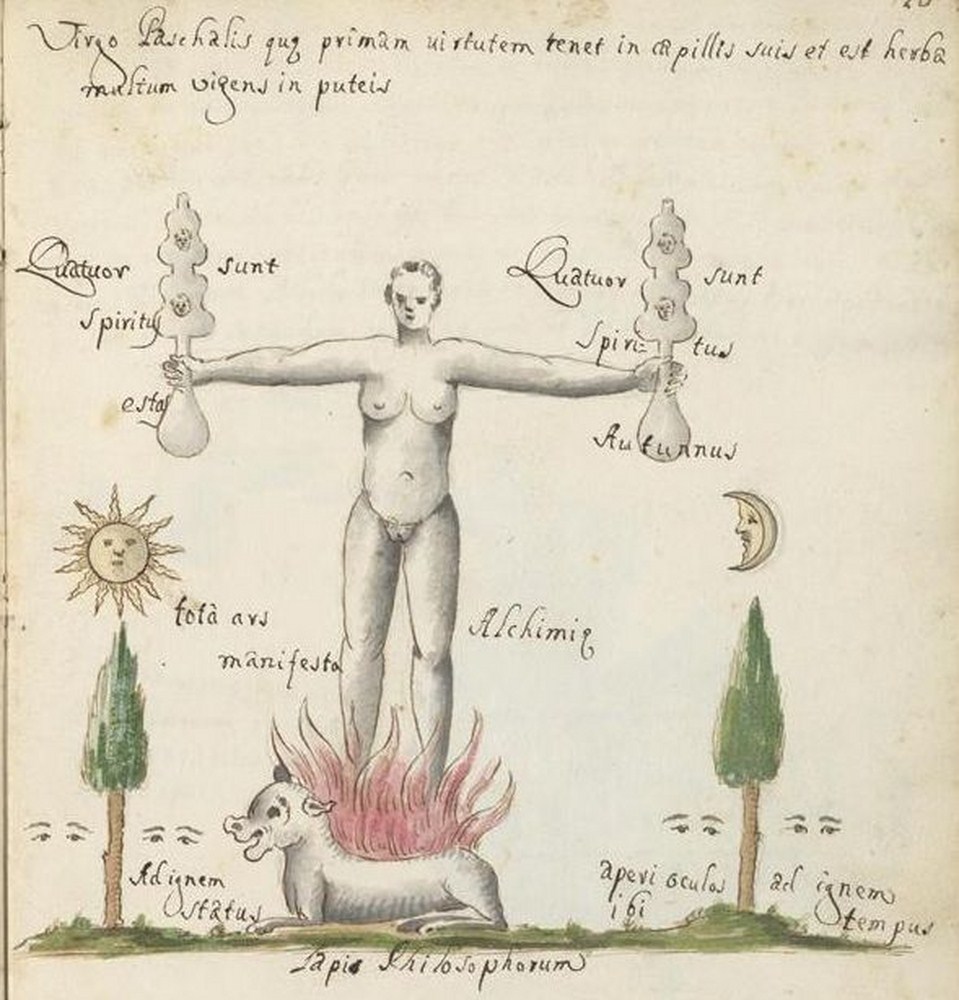 Virgo Paschalis quę primam virtutem tenet in capillis suis et est herba
multum vigens in puteis
Quatuor sunt
Spiritus
estas
Quatuor sunt
Spiri= tus
Autunnus
tota ars
manifesta
Alchimię
Ad ignem
status
aperi oculos ad ignem
ibi tempus
Lapis Philosophorum